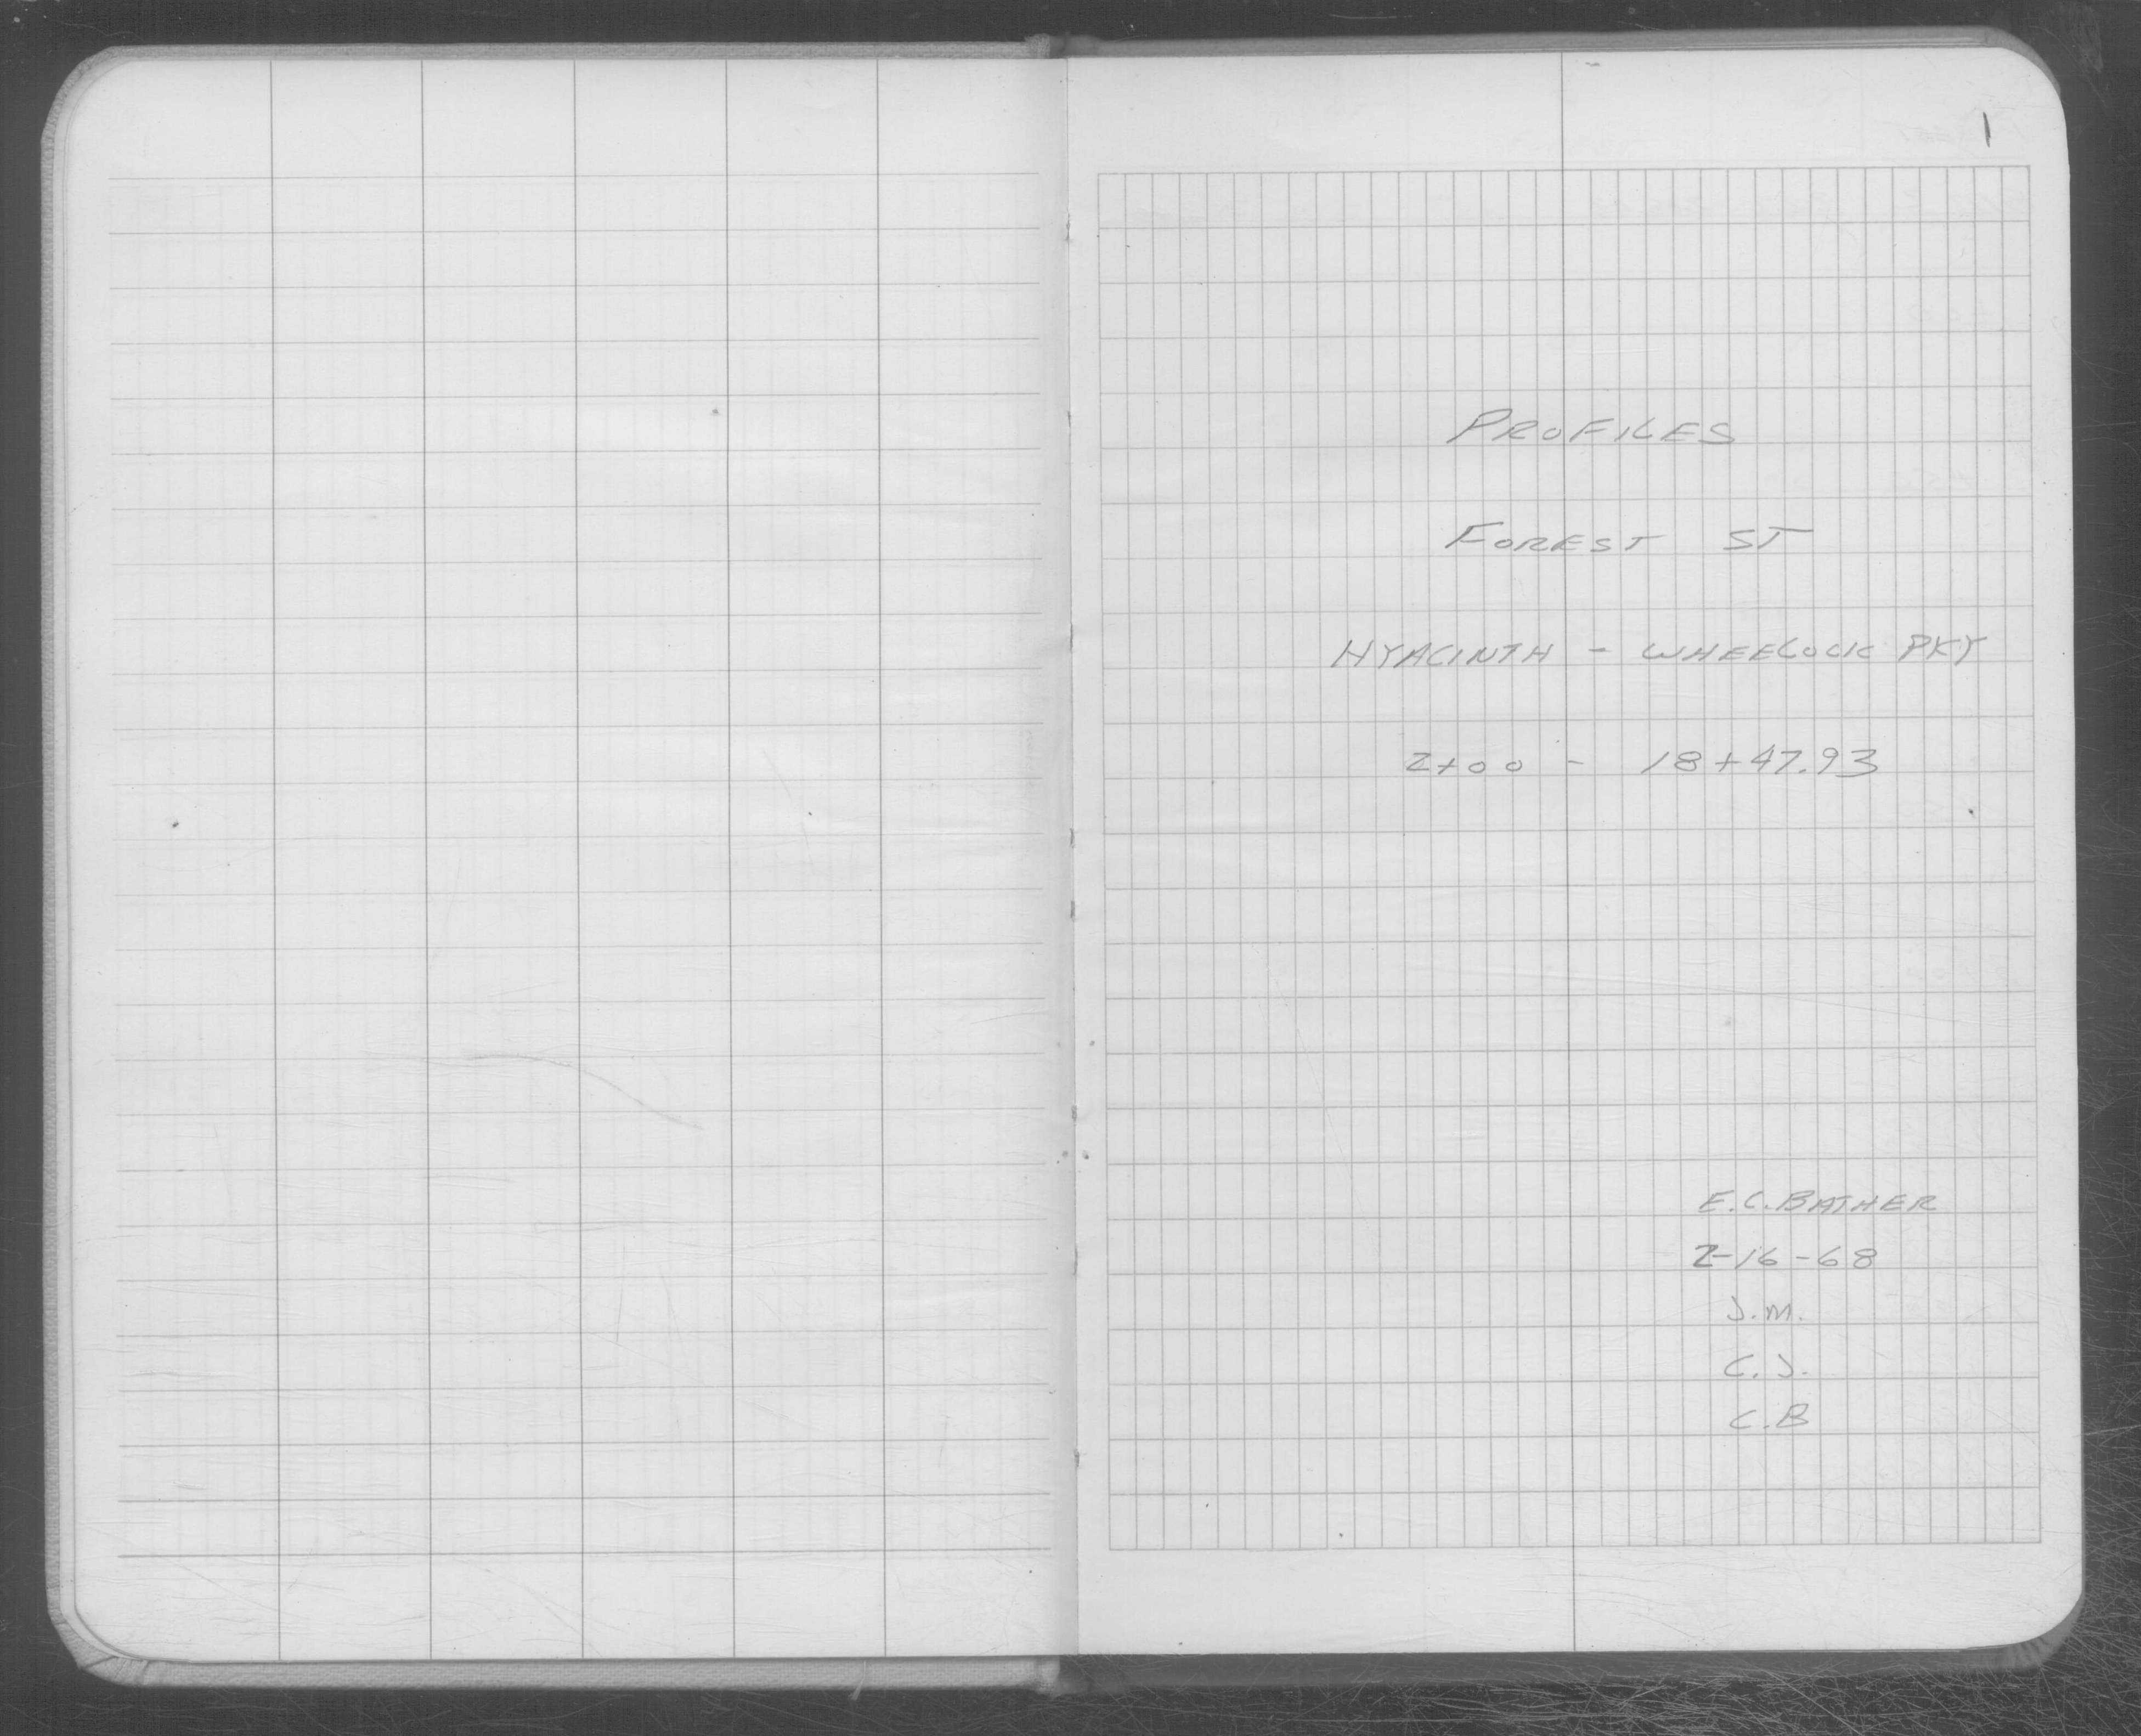 1
PROFILES
FOREST ST
HYACINTH - WHEELOCK PKY
2+00 - 18+47.93
E.C. BATHER
2-16-68
J.M.
C.J.
C.B